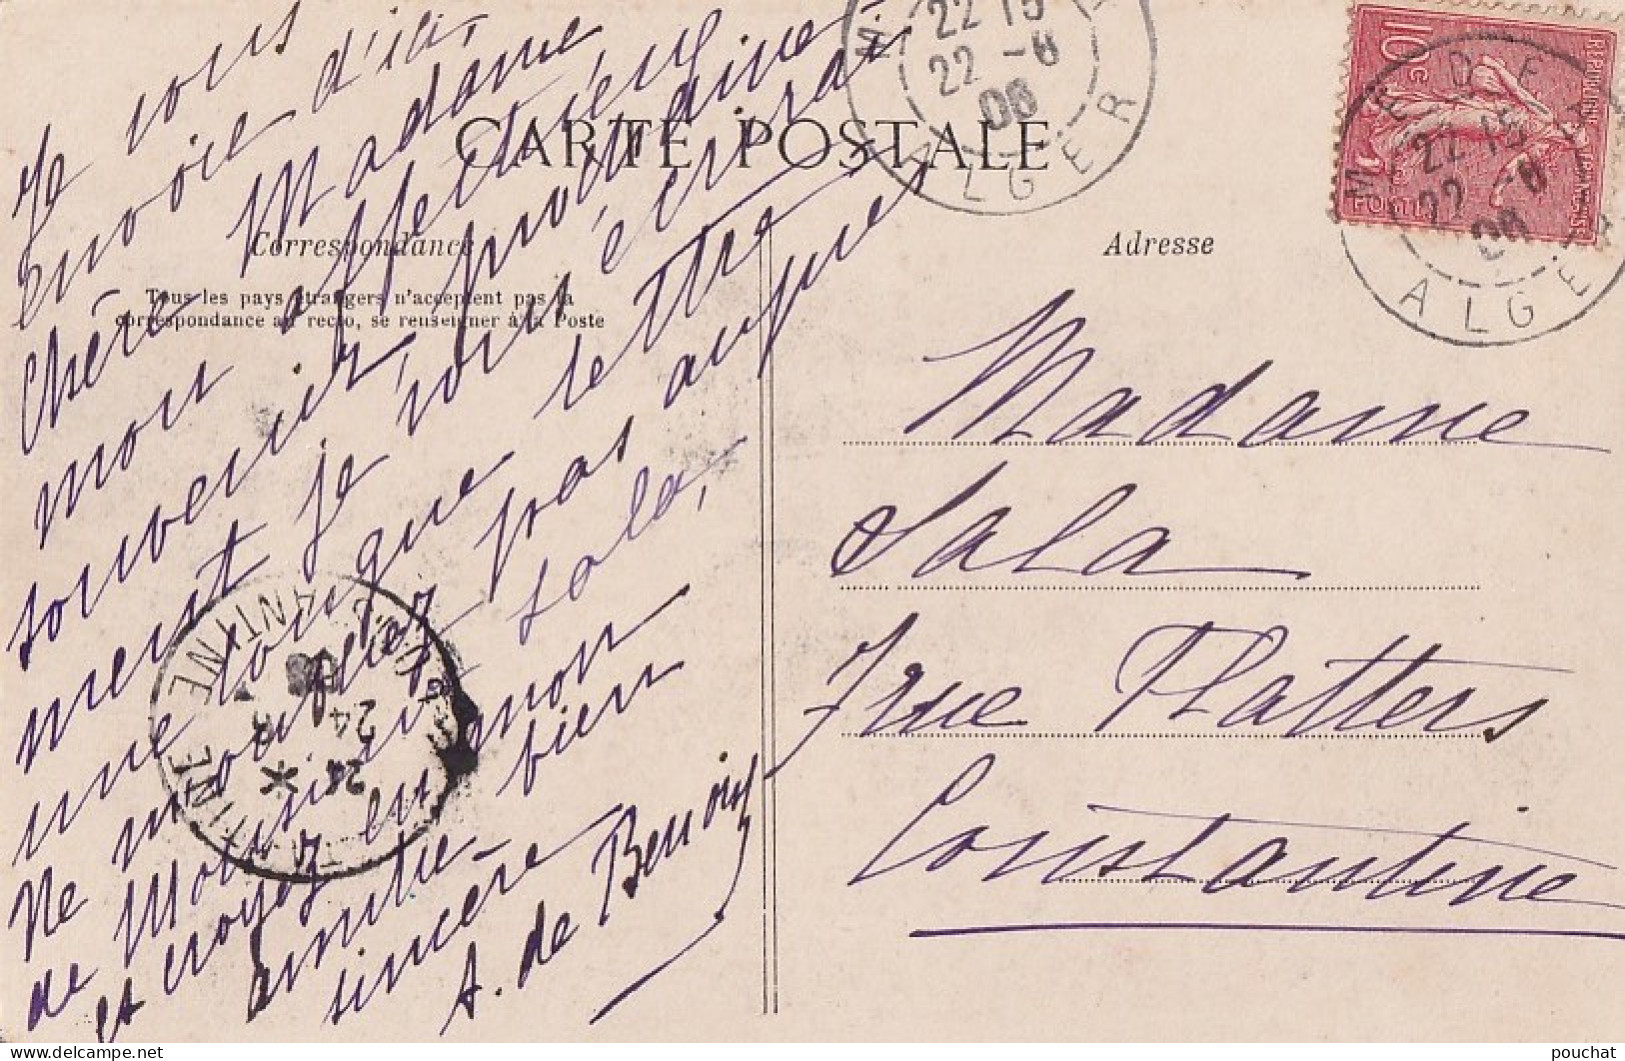 CARTE POSTALE
Correspondance
Tous les pays étrangers n'acceptent pas la
correspondance au recto, se renseigner à la Poste
Je vous
envoie d'ici,
Chère Madame
mon affectueux
souvenir, prochaine-
ment je vous écrirai
une longue lettre
Ne m'oubliez pas auprès
de Monsieur Sala,
et croyez en mon
amitié bien
sincère
A. de Benoist
Adresse
Madame
Sala
7 rue Flatters
Constantine
MEDEA
22 15
22 -6
06
ALGER
REPUBLIQUE FRANÇAISE
10 c
POSTES
MEDEA
22 15
22 -6
06
ALGER
CONSTANTINE
24
24 6
06
pouchat